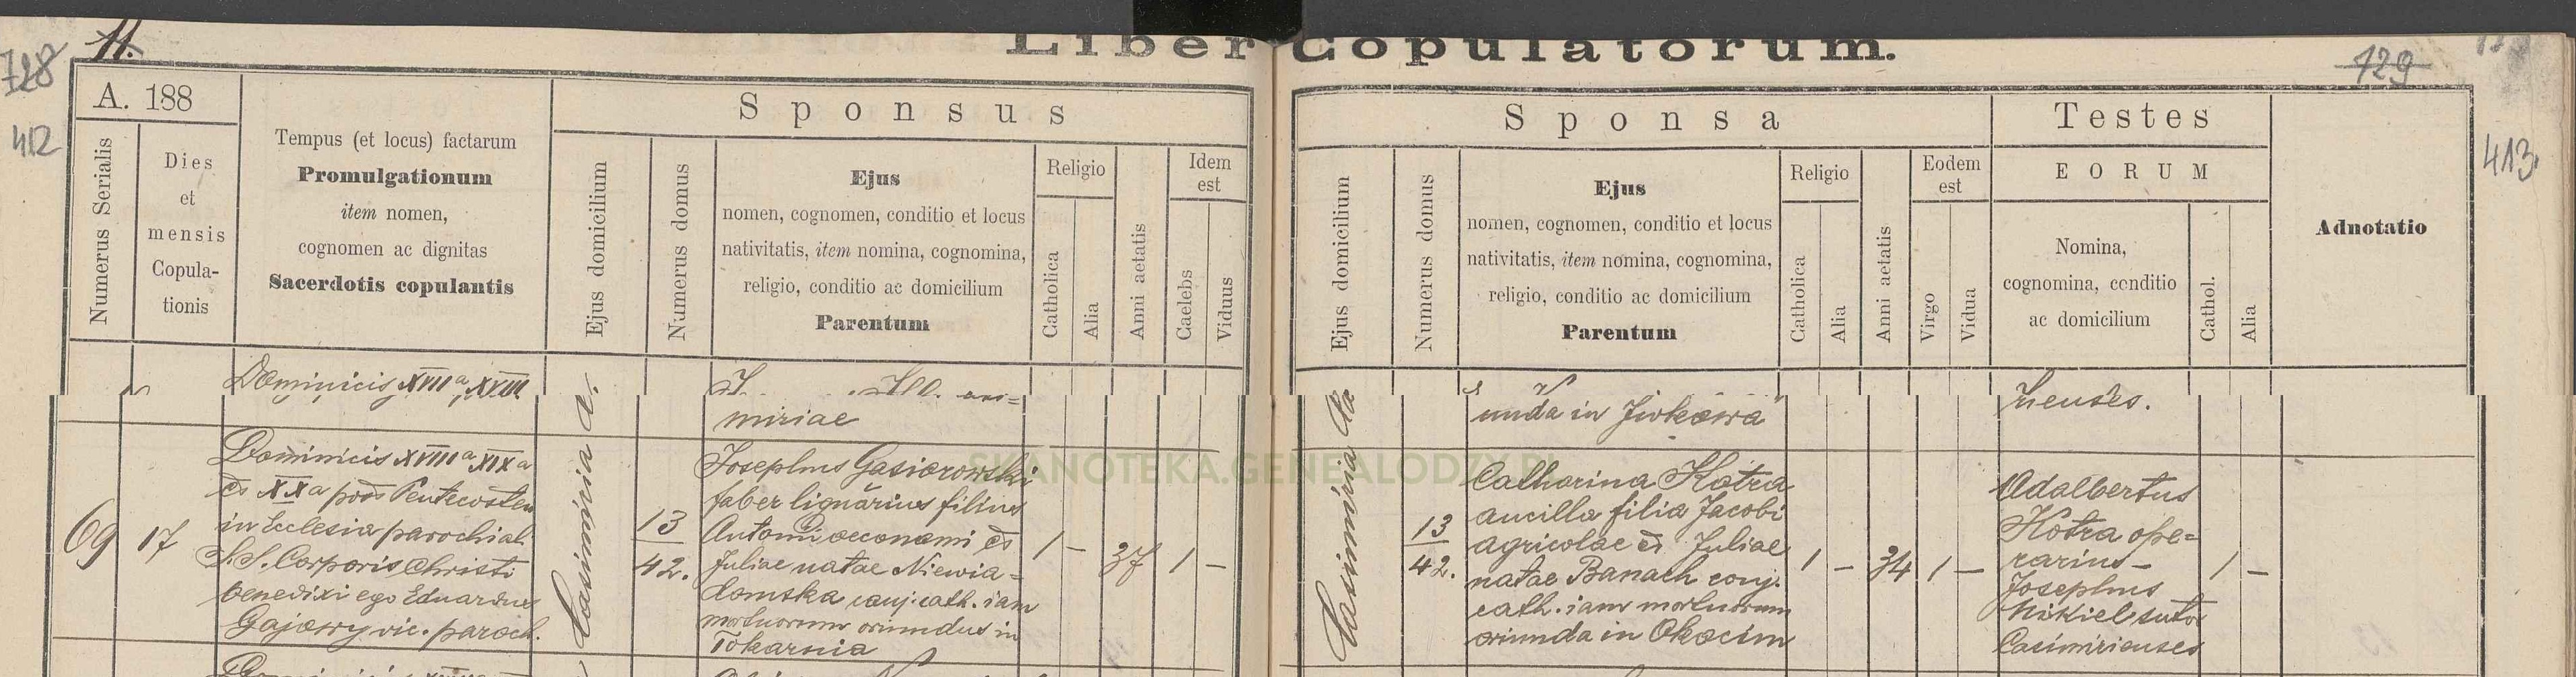 Liber Copulatorum.
728
11.
729
412
413.
A. 188
Numerus Serialis
Dies
et
mensis
Copula-
tionis
Tempus (et locus) factarum
Promulgationum
item nomen,
cognomen ac dignitas
Sacerdotis copulantis
Sponsus
Ejus domicilium
Numerus domus
Ejus
nomen, cognomen, conditio et locus
nativitatis, item nomina, cognomina,
religio, conditio ac domicilium
Parentum
Religio
Catholica
Alia
Anni aetatis
Idem
est
Caelebs
Viduus
Sponsa
Ejus domicilium
Numerus domus
Ejus
nomen, cognomen, conditio et locus
nativitatis, item nomina, cognomina,
religio, conditio ac domicilium
Parentum
Religio
Catholica
Alia
Anni aetatis
Eodem
est
Virgo
Vidua
Testes
EORUM
Nomina,
cognomina, conditio
ac domicilium
Cathol.
Alia
Adnotatio
Dominicis XVII a XVIII
miriae
unda in Jurkowa
zienses.
69
17
Dominicis XVIII a XIX a
et XX a post Pentecosten
in Ecclesia parochial
S.S. Corporis Christi
benedixi ego Eduardus
Gajowy vic. paroch.
Casimiria
13
42.
Josephus Gasiorowski
faber lignarius filius
Antonii oeconomi et
Juliae natae Niewia=
domska conj. cath. iam
mortuorum oriundus in
Tokarnia
1 – 37 1 –
Casimiria
13
42.
Catharina Kotra
ancilla filia Jacobi
agricolae et Juliae
natae Banach conj.
cath. iam mortuorum
oriunda in Okocim
1 – 34 1 –
Adalbertus
Kotra ope=
rarius –
Josephus
Nikiel sutor
Casimirienses
1 –
SKANOTEKA.GENEALODZY.PL